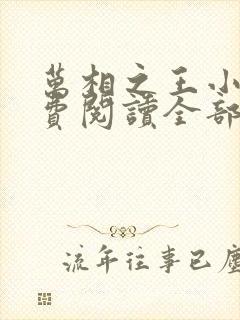 萬相之王小
費閱讀全部
流年往事已塵